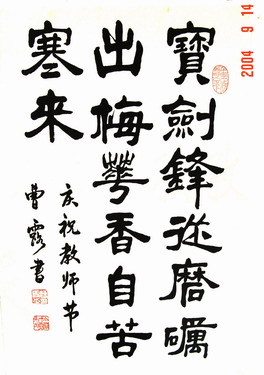 寶劍鋒從磨礪
出梅華香自苦
寒来
庆祝教师节
曹露書
2004 9 14